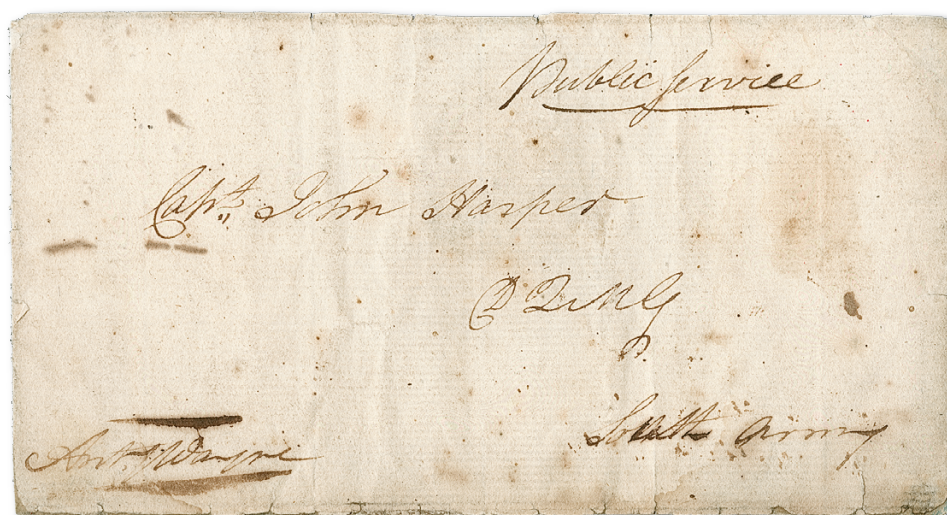 Public Service
Capt. John Harper
D Q M G
South Army
Ant.y Wayne